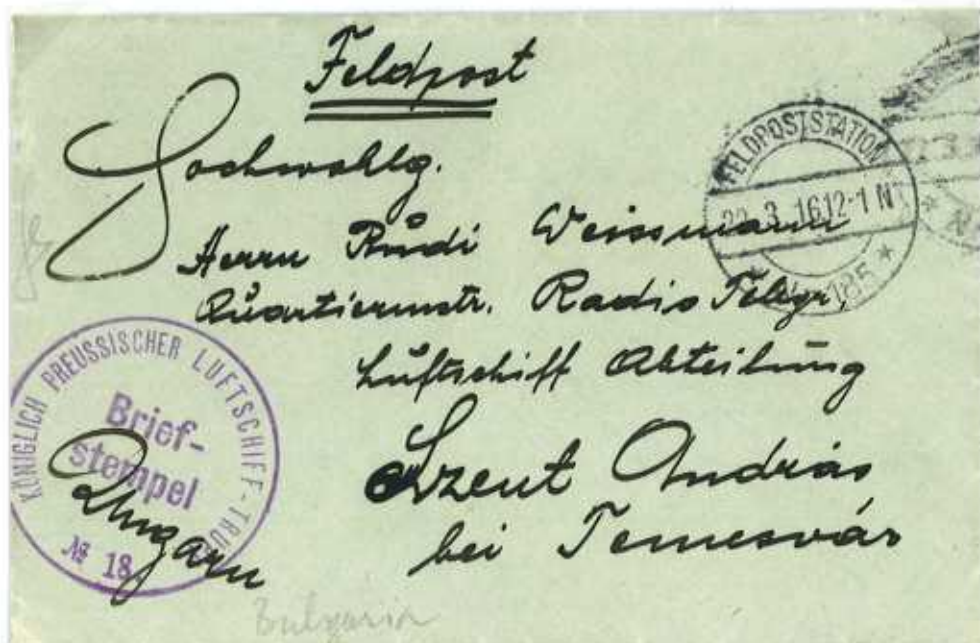 Feldpost
Hochwohllg.
Herrn Rudi Weissmann
Quartiermstr. Radio Telegr.
Luftschiff Abteilung
Szent András
bei Temesvár
Ungarn
FELDPOSTSTATION
3.16.12-1 N
185 *
KÖNIGLICH PREUSSISCHER LUFTSCHIFF-TRUPP
Brief-
stempel
№ 18
Bulgaria